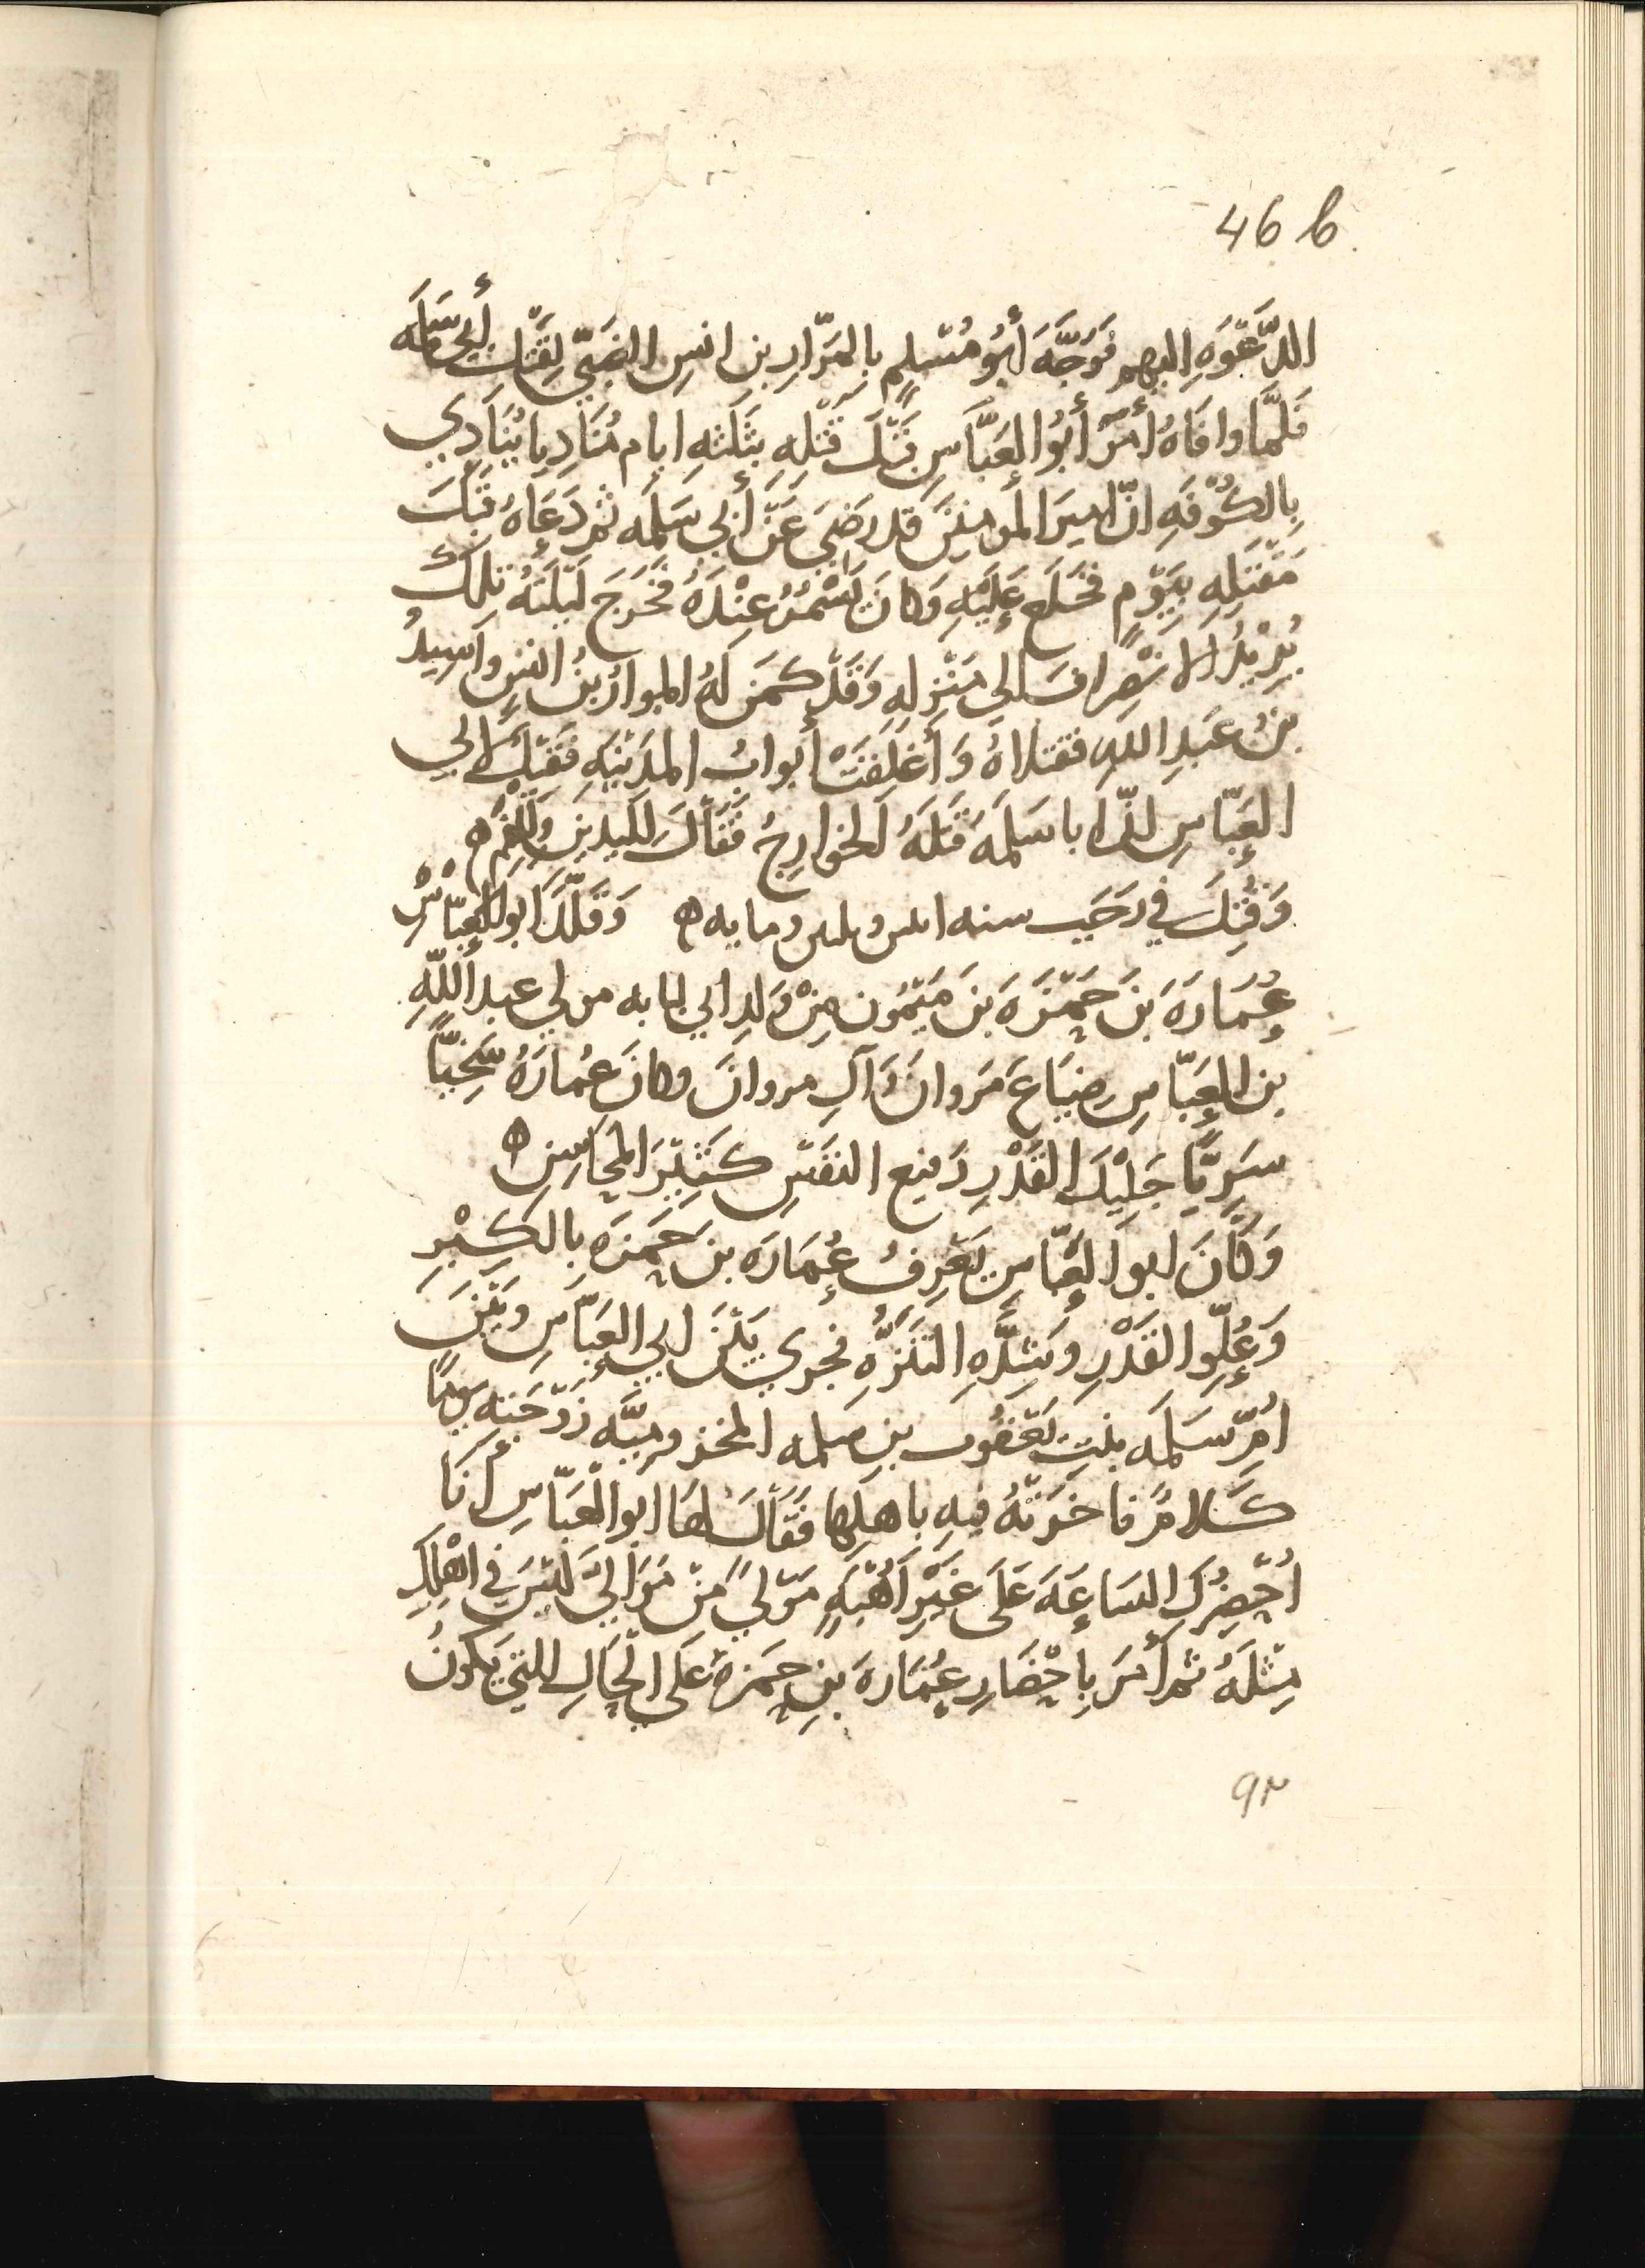 46 b
الدَّعْوَهِ اليهم فَوَجَّهَ أَبُو مُسْلِمٍ بِالمَرّارِ بن انسِ الضَبّيّ لِقَتْلِ أَبي سَلَمَه
فَلَمَّا وافَاهُ أَمَرَ أَبُو العَبَّاسِ قَبْلَ قَتْلِهِ بثَلَثهِ ايام مُنَادِيا يُنَادِي
بِالكُوْفَهِ انّ امِيرَ المُومنِينَ قد رَضِيَ عَنْ أَبِي سَلَمَه ثم دَعَاهُ قَبْلَ
مَقْتَلِهِ بِيَوْمٍ فخَلَع عَلَيْهِ وَكانَ يَسْمُرُ عِنْدَهُ فَخَرَجَ لَيْلَتَهُ تِلكَ
يُرِيْدُ الانْصِرافَ الي مَنْزِلِهِ وَقَدْ كَمَنَ لَهُ المرارُ بنُ انسٍ واَسِيدُ
بنُ عَبدِ اللهِ فقتلاهُ وَأُغلِقَتْ أبوابُ المدِيْنَهِ فَقِيْلَ لابي
العَبّاسِ انّ ابا سَلَمَهَ قَتَلَهُ الخوارِجُ فَقَالَ لليدينِ وَلِلْفَمِ ه
وَقُتِلَ في رَجَبِ سنه اىىىں وىلىىں ومايه ه وَقَلَّدَ ابو العَبّاسْ
عُمَارَهَ بنَ حَمْزَهَ بنَ مَيْمُون مِنْ وَلدِ ابي لبابه مولي عبد اللّهِ
بن العَبّاسِ ضِيَاعَ مَروانَ وَآلِ مروانَ وكانَ عُمارَهُ سَخِيّاً
سَرِيّاً جَلِيْلَ القَدْرِ رَفيع النفَسْ كَثِيْرَ المحَاسِنِ ه
وَكَانَ ابو العَبّاسِ يَعْرِفُ عُمَارَه بنَ حَمزَه بِالكِبْرِ
وَعُلُوّ القَدْرِ وشِدَّهِ التَنَزُّهِ فجري بَيْنَ ابي العَبَّاسِ وبَيْنَ
امِّ سَلَمَه بنتِ يَعْقُوب بن سلمه المخزوميَّه زَوْجَتِه يَومًا
كَلامٌ فاخَرَتْهُ فيهِ باهلِهَا فَقَالَ لهَا ابو العَبّاسِ أَنَا
اُحْضِرُكِ السَاعَهَ عَلَى غَيْرِ اُهْبَهٍ مَوْلًى مِنْ مَوَالِيَّ لَيْسَ في اهْلِكِ
مِثْلَهُ ثم أَمَرَ بِاِحْضَارِ عُمَارهَ بنِ حَمزهَ عَلَى الحَالِ التي يَكونُ
٩٢